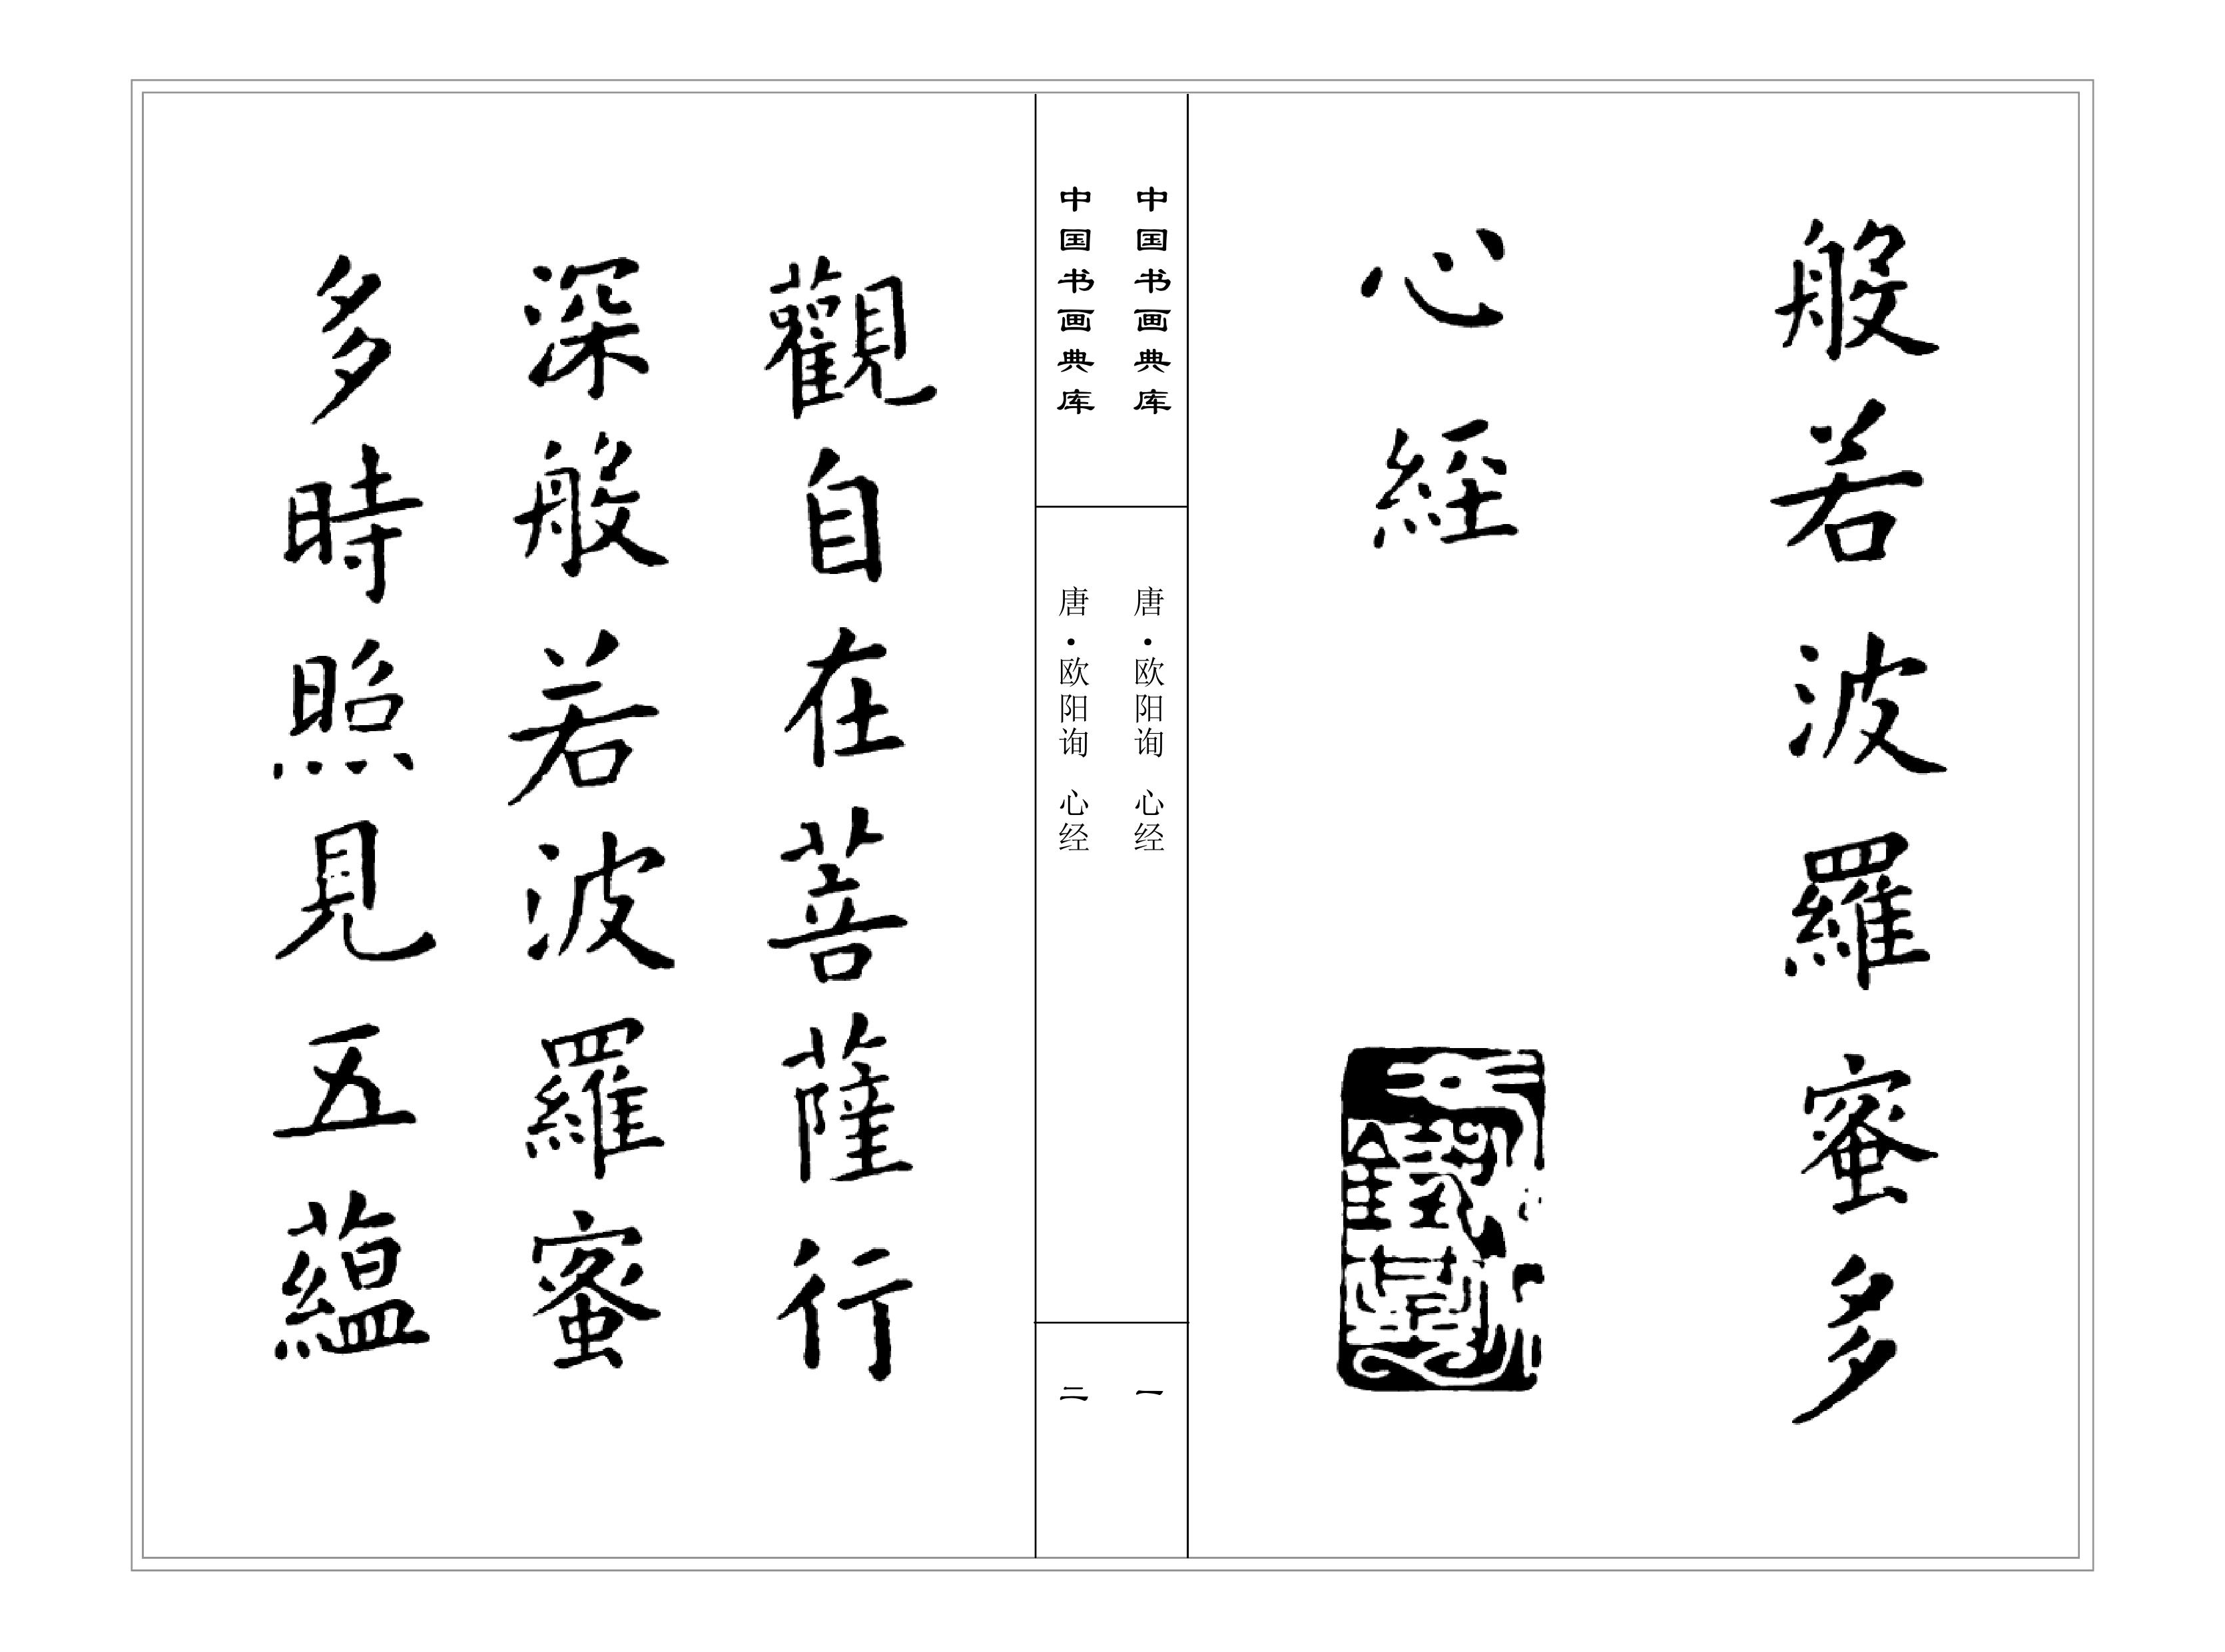 般若波羅蜜多
心經
中国书画典库
唐·欧阳询 心经
一
中国书画典库
唐·欧阳询 心经
二
觀自在菩薩行
深般若波羅蜜
多時照見五蘊